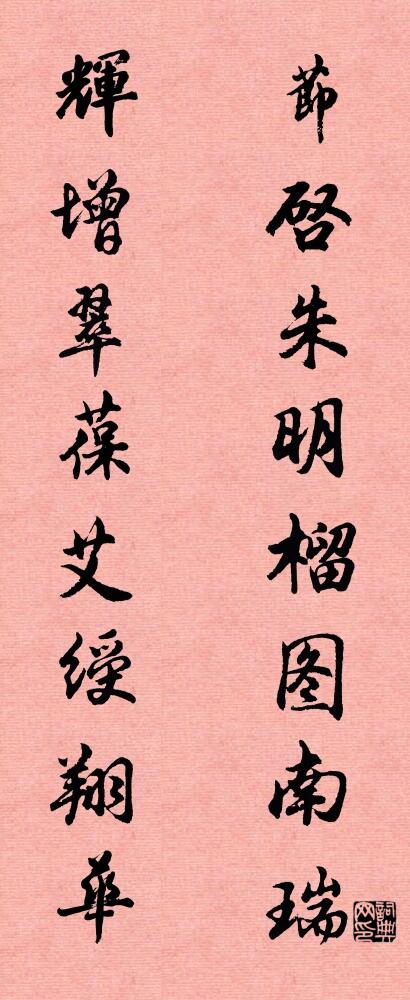 節啓朱明榴图南瑞
輝增翠葆艾綬翔華
詞典网印